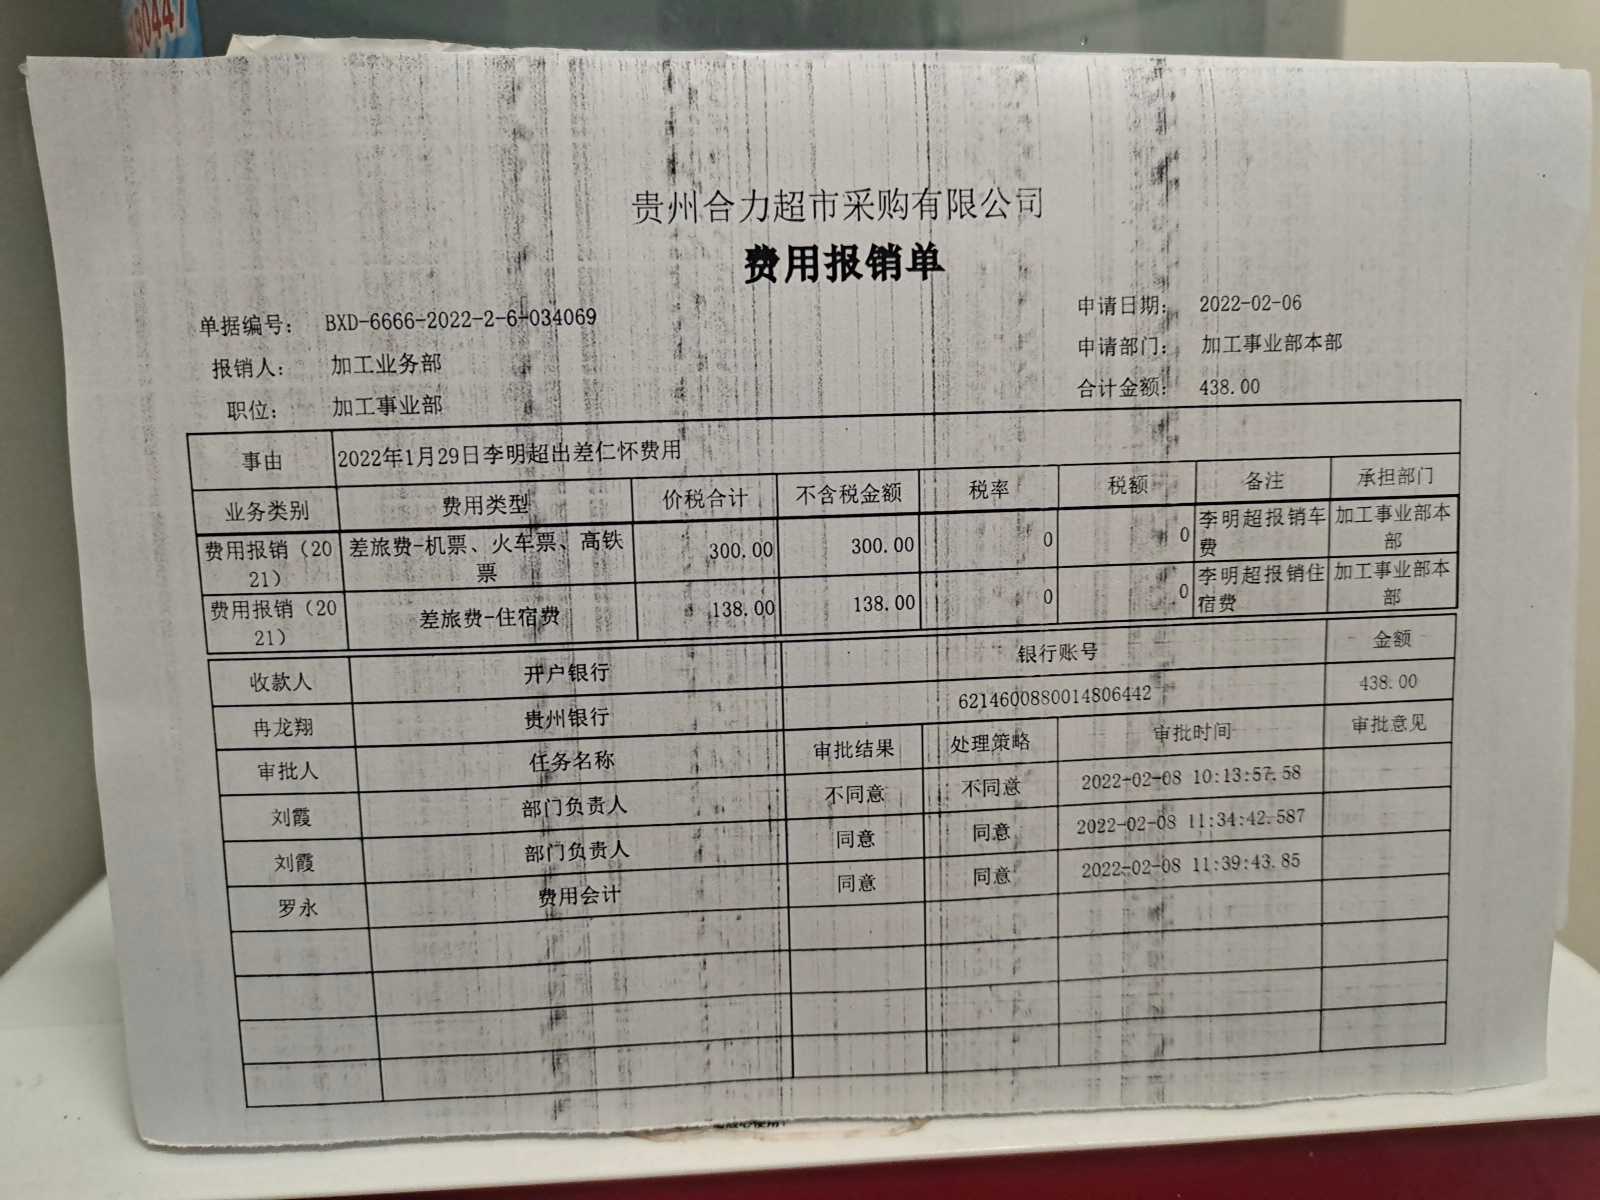 90447
贵州合力超市采购有限公司
费用报销单
单据编号： BXD-6666-2022-2-6-034069 申请日期： 2022-02-06
报销人： 加工业务部 申请部门： 加工事业部本部
职位： 加工事业部 合计金额： 438.00
事由 2022年1月29日李明超出差仁怀费用
业务类别 费用类型 价税合计 不含税金额 税率 税额 备注 承担部门
费用报销（20 差旅费-机票、火车票、高铁 300.00 300.00 0 0 李明超报销车 加工事业部本
21） 票 费 部
费用报销（20 差旅费-住宿费 138.00 138.00 0 0 李明超报销住 加工事业部本
21） 宿费 部
收款人 开户银行 银行账号 金额
冉龙翔 贵州银行 6214600880014806442 438.00
审批人 任务名称 审批结果 处理策略 审批时间 审批意见
刘霞 部门负责人 不同意 不同意 2022-02-08 10:13:57.58
刘霞 部门负责人 同意 同意 2022-02-08 11:34:42.587
罗永 费用会计 同意 同意 2022-02-08 11:39:43.85